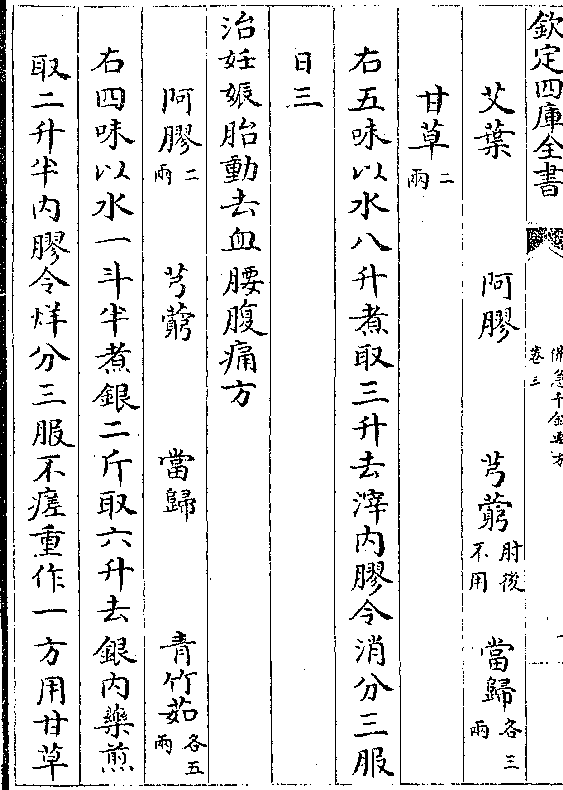 欽定四庫全書
備急千金要方
卷三
艾葉 阿膠 芎藭肘後不用 當歸各三兩
甘草二兩
右五味以水八升煮取三升去滓内膠令消分三服
日三
治妊娠胎動去血腰腹痛方
阿膠二兩 芎藭 當歸 青竹茹各五兩
右四味以水一斗半煮銀二斤取六升去銀内藥煎
取二升半内膠令烊分三服不瘥重作一方用甘草